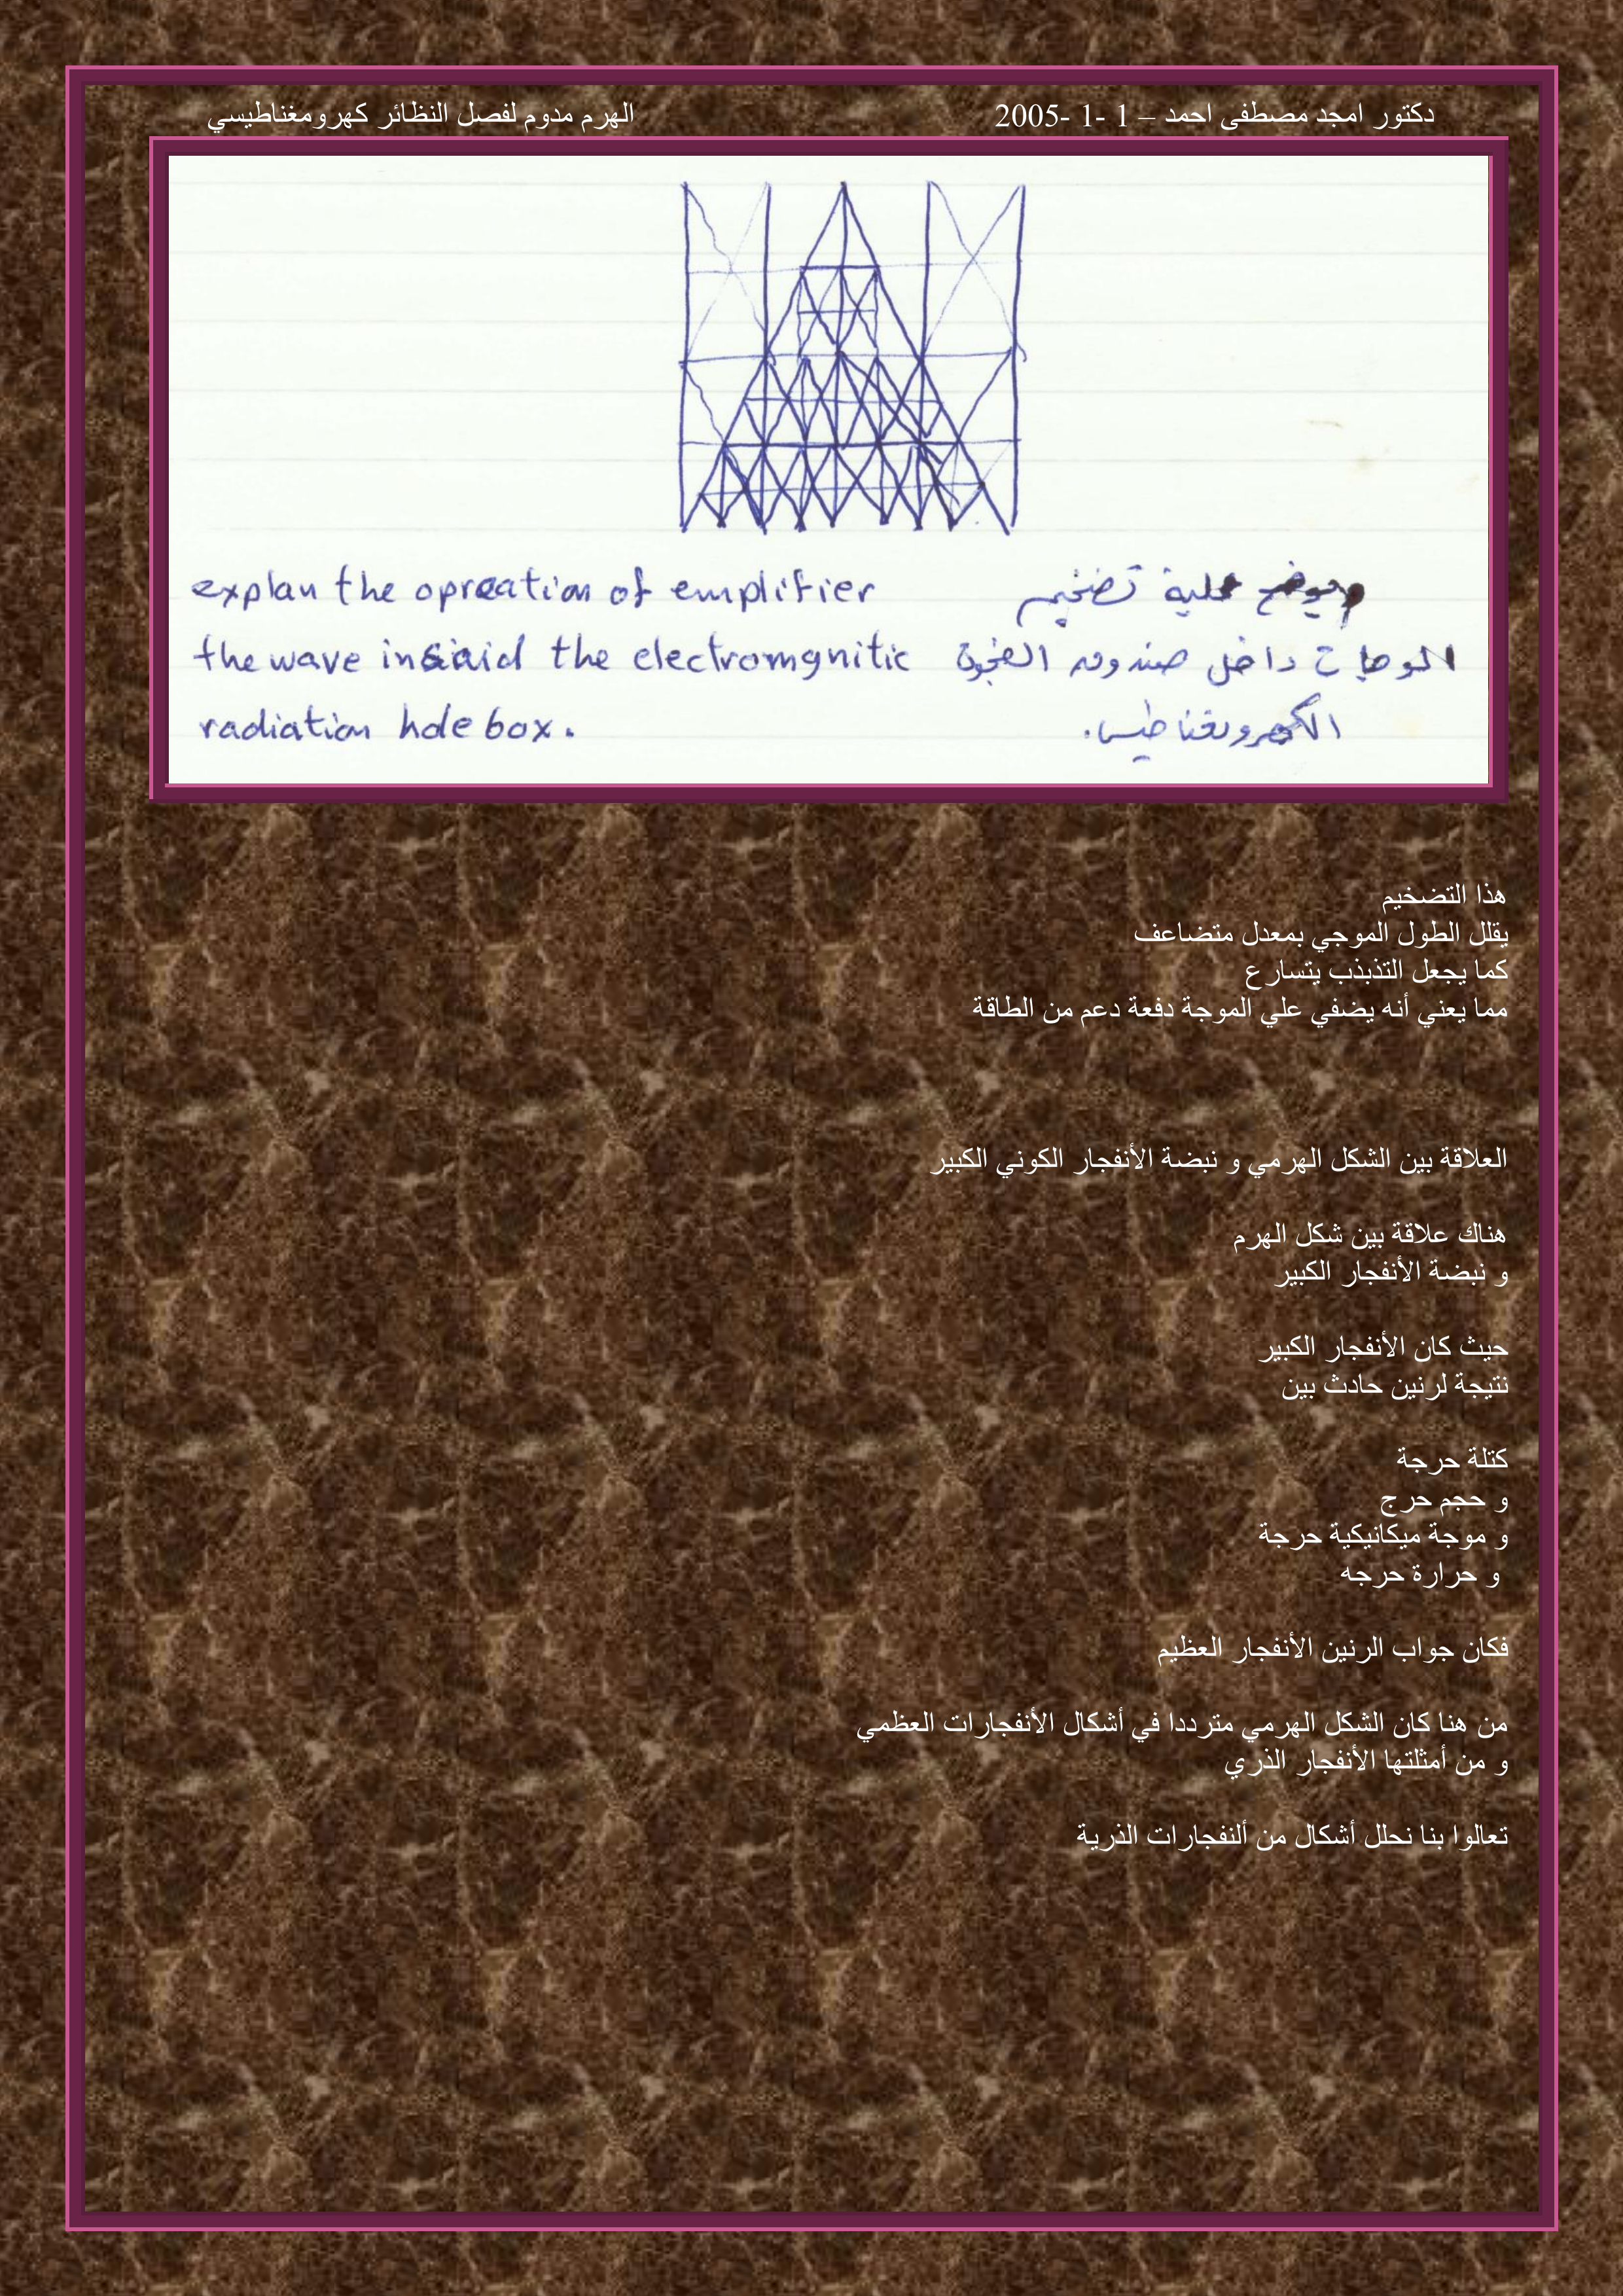 دكتور امجد مصطفى احمد – 1 -1 -2005 الهرم مدوم لفصل النظائر كهرومغناطيسي
يوضح عملية تضخيم
explan the opreation of emplifier
داخل صندوق الفجوة
the wave insiaid the electromgnitic
الكهرومغناطيسى.
radiation hole box.
هذا التضخيم
يقلل الطول الموجي بمعدل متضاعف
كما يجعل التذبذب يتسارع
مما يعني أنه يضفي علي الموجة دفعة دعم من الطاقة
العلاقة بين الشكل الهرمي و نبضة الأنفجار الكوني الكبير
هناك علاقة بين شكل الهرم
و نبضة الأنفجار الكبير
حيث كان الأنفجار الكبير
نتيجة لرنين حادث بين
كتلة حرجة
و حجم حرج
و موجة ميكانيكية حرجة
و حرارة حرجه
فكان جواب الرنين الأنفجار العظيم
من هنا كان الشكل الهرمي مترددا في أشكال الأنفجارات العظمي
و من أمثلتها الأنفجار الذري
تعالوا بنا نحلل أشكال من ألنفجارات الذرية